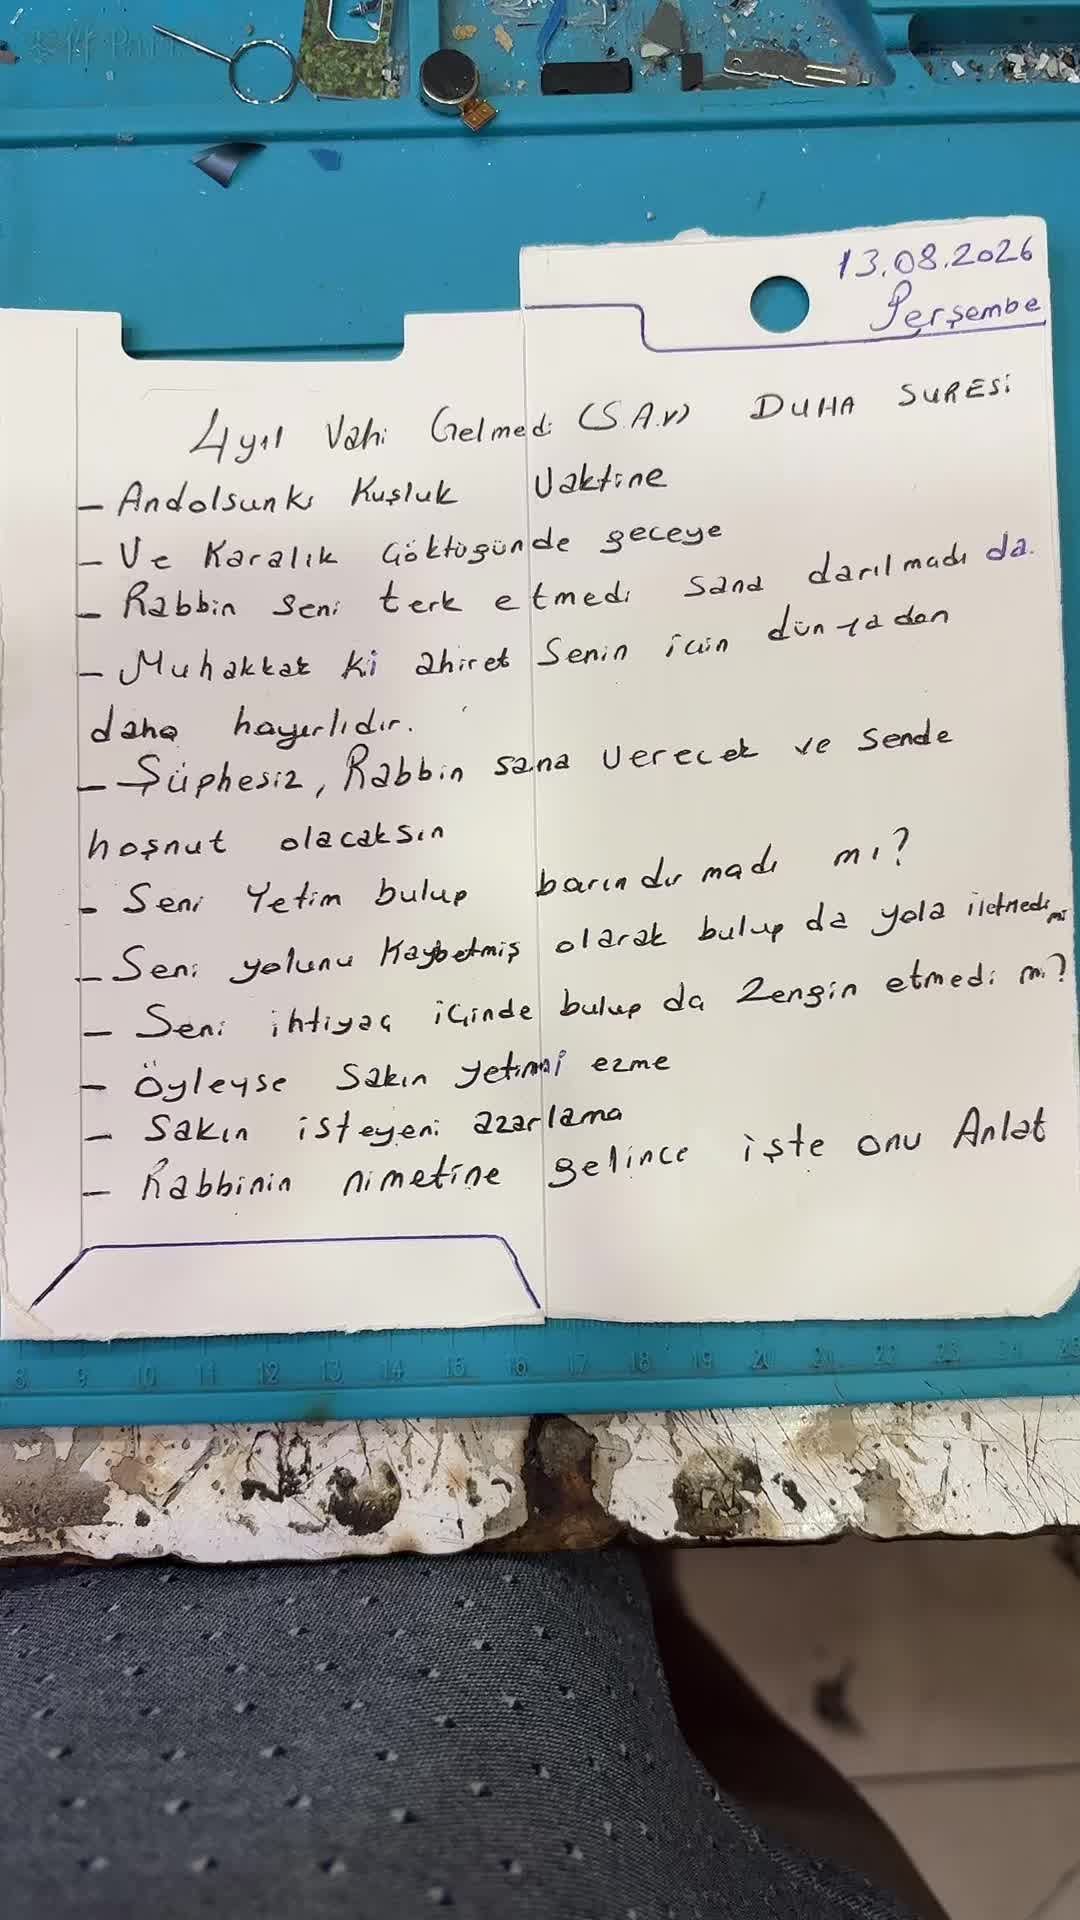 零件 Part
13.08.2026
Perşembe
4 yıl Vahi Gelmedi (S.A.V) DUHA SURESİ
- Andolsunki Kuşluk Vaktine
- Ve Karalık Göktüğünde geceye
- Rabbin seni terk etmedi sana darılmadı da.
- Muhakkak ki ahiret Senin için dünyadan
daha hayırlıdır.
- Şüphesiz, Rabbin sana verecek ve sende
hoşnut olacaksın
- Seni Yetim bulup barındırmadı mı?
- Seni yolunu Kaybetmiş olarak bulup da yola iletmedi mi
- Seni ihtiyaç içinde bulup da Zengin etmedi mi?
- Öyleyse Sakın yetimi ezme
- Sakın isteyeni azarlama
- Rabbinin nimetine gelince işte onu Anlat
8 9 10 11 12 13 14 15 16 17 18 19 20 21 22 23 24 25